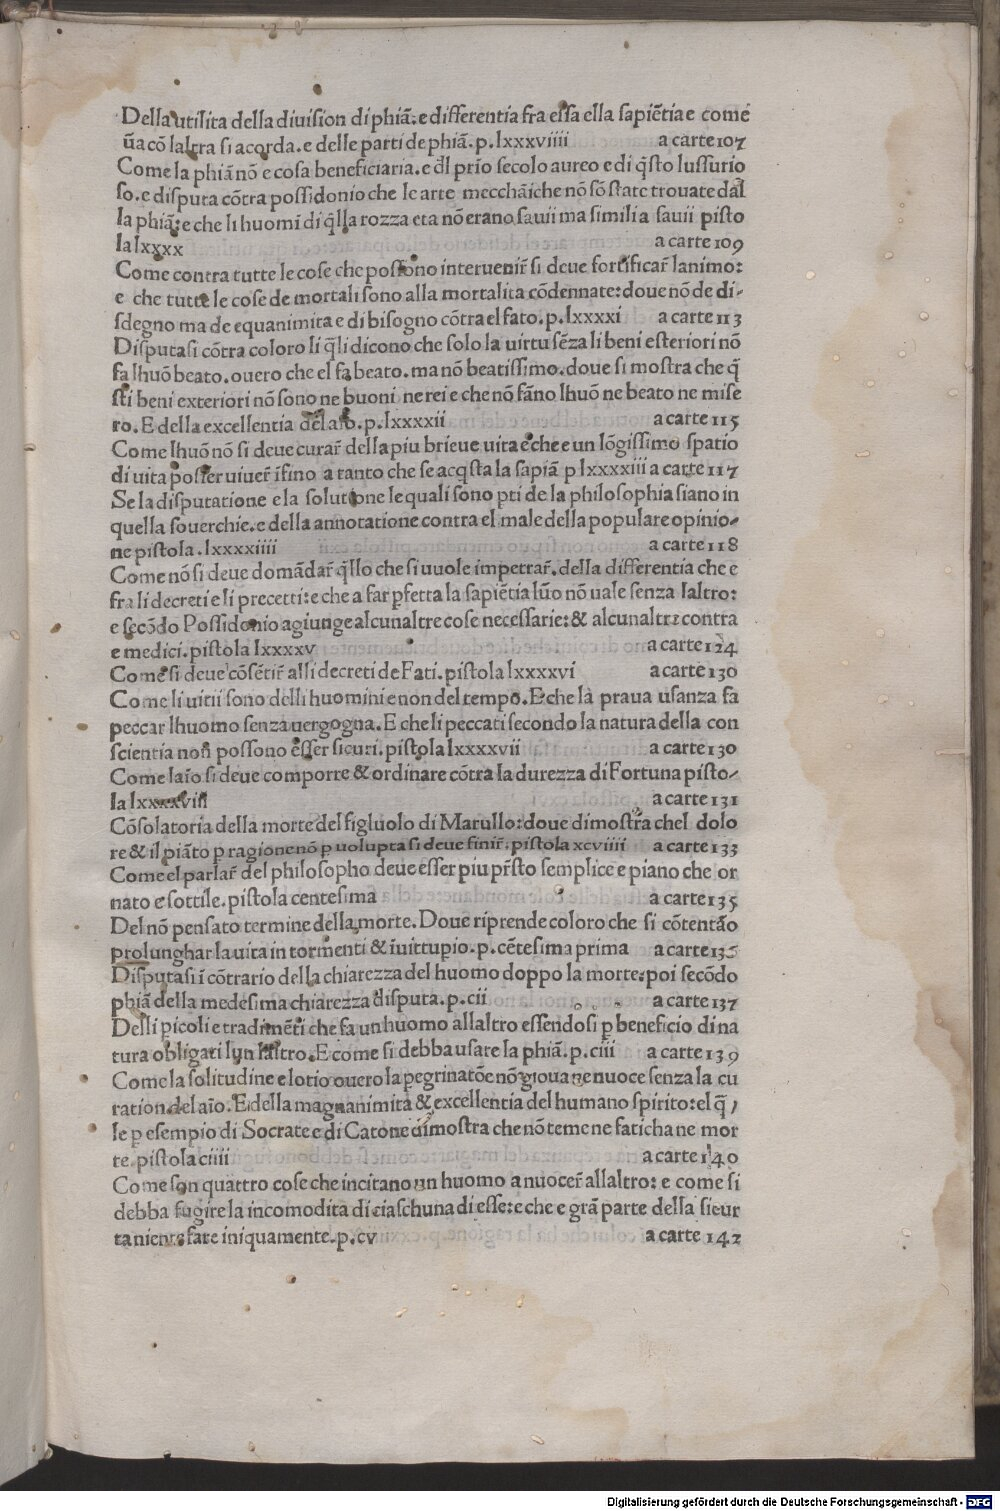 Della utilita della diuision di phiā. e differentia fra essa ella sapiētia e come
ūa cō laltra si acorda. e delle parti de phiā. p. lxxxviiii a carte 107
Come la phiā nō e cosa beneficiaria. e dl̄ prīo secolo aureo e di q̄sto lussurio
so. e disputa cōtra possidonio che le arte mecchāiche nō sō state trouate dal
la phiā: e che li huomī di q̄lla rozza eta nō erano sauii ma simili a sauii pisto
la lxxxx a carte 109
Come contra tutte le cose che possono interuenir̄ si deue fortificar̄ lanimo:
e che tutte le cose de mortali sono alla mortalita cōdennate: doue nō de di-
sdegno ma de equanimita e di bisogno cōtra el fato. p. lxxxxi a carte 113
Disputasi cōtra coloro li q̄li dicono che solo la uirtu sēza li beni esteriori nō
fa lhuō beato. ouero che el fa beato. ma nō beatissimo. doue si mostra che q̄
sti beni exteriori nō sono ne buoni ne rei e che nō fāno lhuō ne beato ne mise
ro. E della excellentia del aīo. p. lxxxxii a carte 115
Come lhuō nō si deue curar̄ della piu brieue uita e che e un lōgissimo spatio
di uita posser uiuer̄ īfino a tanto che se acq̄sta la sapiā p lxxxxiii a carte 117
Se la disputatione e la solutione le quali sono pti de la philosophia siano in
quella souerchie. e della annotatione contra el male della populare opinio-
ne pistola. lxxxxiiii a carte 118
Come nō si deue domādar̄ q̄llo che si uuole impetrar̄. della differentia che e
fra li decreti e li precetti: e che a far p̱fetta la sapiētia lūo nō uale senza laltro:
e secōdo Possidonio agiunge alcunaltre cose necessarie: & alcunaltre contra
e medici. pistola lxxxxv a carte 124
Come si deue cōsētir̄ alli decreti de Fati. pistola lxxxxvi a carte 130
Come li uitii sono delli huomini e non del tempo. E che la praua usanza fa
peccar lhuomo senza uergogna. E che li peccati secondo la natura della con
scientia non possono esser sicuri. pistola lxxxxvii a carte 130
Come laīo si deue comporre & ordinare cōtra la durezza di Fortuna pisto-
la lxxxxviii a carte 131
Cōsolatoria della morte del figluolo di Marullo: doue dimostra chel dolo
re & il piāto p̱ ragione nō p̱ uolupta si deue finir̄. pistola xcviiii a carte 133
Come el parlar̄ del philosopho deue esser piu pr̄sto semplice e piano che or
nato e sottile. pistola centesima a carte 135
Del nō pensato termine della morte. Doue riprende coloro che si cōtentāo
prolunghar la uita in tormenti & ī uittupio. p. cētesima prima a carte 136
Disputasi ī cōtrario della chiarezza del huomo doppo la morte: poi secōdo
phiā della medesima chiarezza disputa. p. cii a carte 137
Delli picoli e tradimēti che fa un huomo allaltro essendosi p̱ beneficio di na
tura obligati lun laltro. E come si debba usare la phiā. p. ciii a carte 139
Come la solitudine e lotio ouero la pegrinatōe nō gioua ne nuoce senza la cu
ration del aīo. E della magnanimita & excellentia del humano spirito: el q̄,
le p̱ esempio di Socrate e di Catone dimostra che nō teme ne faticha ne mor
te. pistola ciiii a carte 140
Come son quattro cose che incitano un huomo a nuocer̄ allaltro: e come si
debba fugire la incomodita di ciaschuna di esse: e che e grā parte della sicur
ta niente fare iniquamente. p. cv a carte 142
Digitalisierung gefördert durch die Deutsche Forschungsgemeinschaft - DFG